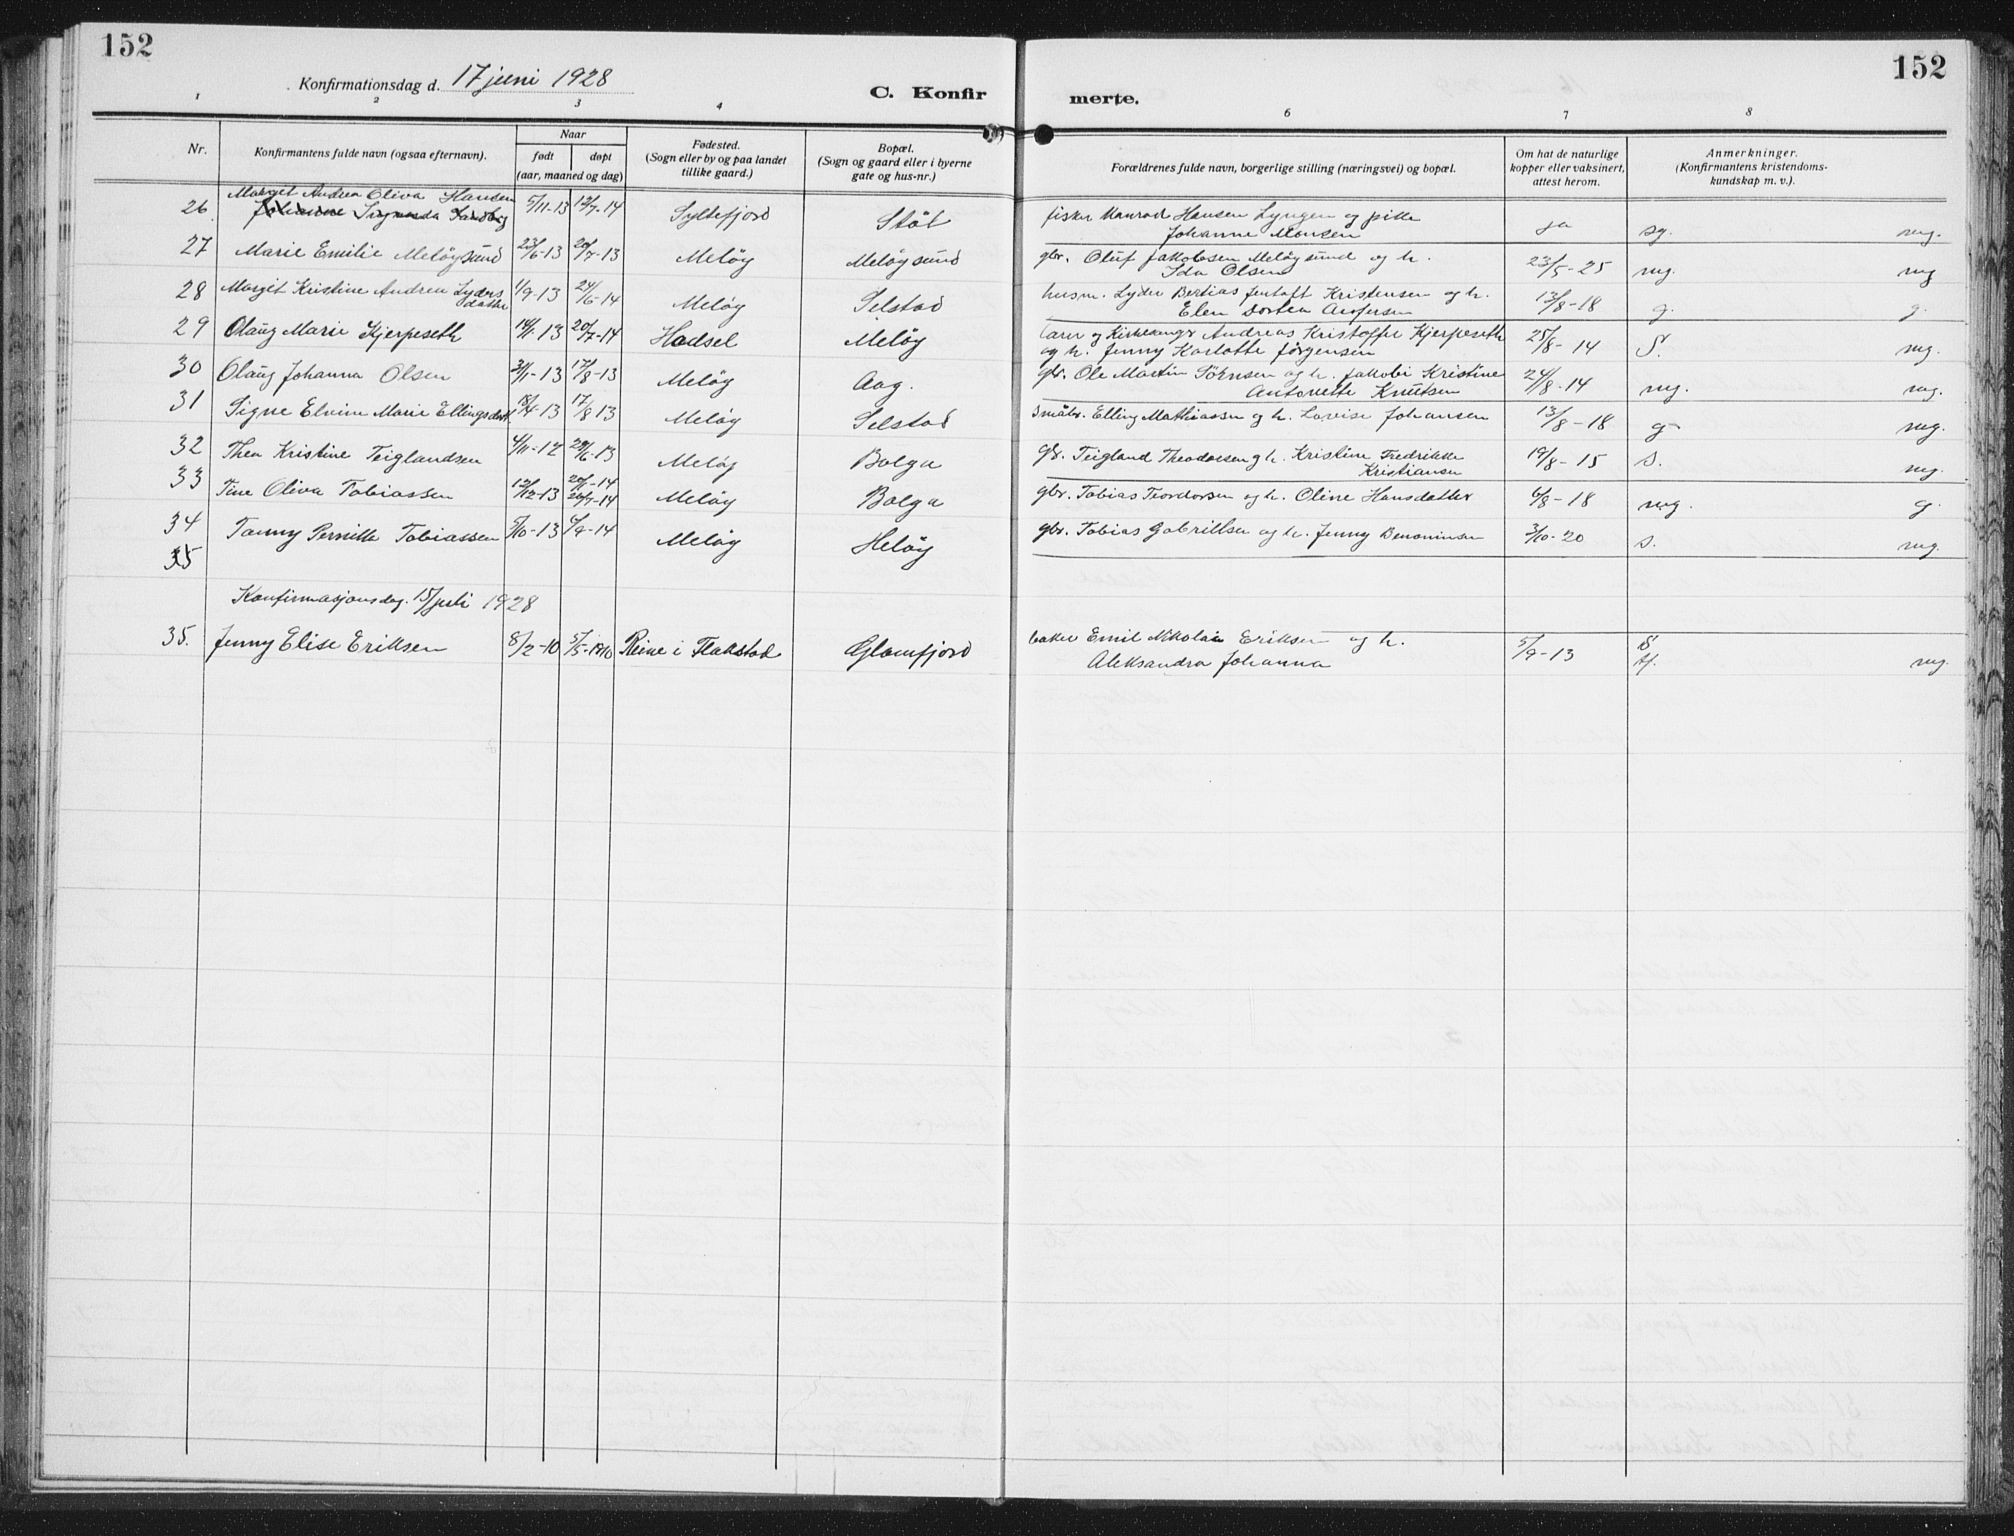 152
152
Konfirmationsdag d. 17 juni 1928
C. Konfir
merte.
1 2 3 4 6 7 8
Nr.
Konfirmantens fulde navn (ogsaa efternavn).
Naar
født døpt
(aar, maaned og dag)
Fødested.
(Sogn eller by og paa landet
tillike gaard.)
Bopæl.
(Sogn og gaard eller i byerne
gate og hus-nr.)
Forældrenes fulde navn, borgerlige stilling (næringsvei) og bopæl.
Om hat de naturlige
kopper eller vaksinert,
attest herom.
Anmerkninger.
(Konfirmantens kristendoms-
kundskap m. v.).
Margit Andrea Oliva Hansen
26 Johanne 5/11-13 12/7-14 Syltefjord Støt fisker Hansen Lyngen og pike
Johanne Monsen ja sg. mg.
27 Marie Emilie Meløysund 23/6-13 20/7-13 Meløy Meløysund gbr. Oluf Jakobsen Meløysund og h.
Ida Olsen 23/5-25 mg. mg
28 Margit Kristine Andrea Lyders
datter 1/9-13 24/6-14 Meløy Selstad husm. Lyder Bertias Jentoft Kristensen og h.
Elen Dortea 13/8-18 g. g.
29 Olaug Marie Kjerpeseth 14/1-13 20/7-14 Hadsel Meløy Lærer og Kirkesanger Andreas Kristoffer Kjerpeseth
og h. Jenny Karlotte Jørgensen 25/8-14 S. mg.
30 Olaug Johanna Olsen 2/1-13 17/8-13 Meløy Aag. gbr. Ole Martin Sørnsen og h. Jakobi Kristine
Antonette Knutsen 24/8-14 mg. mg.
31 Signe Elvine Marie Ellingsdatt. 18/4-13 17/8-13 Meløy Selstad Småbr. Elling Mathiassen og h. Lovise Johansen 13/8-18 g mg.
32 Thea Kristine Teiglandsen 4/11-12 29/6-13 Meløy Bolga gbr. Teigland Theodorsen og h. Kristine Fredrikke
Kristiansen 19/8-15 s. mg.
33 Tine Oliva Tobiassen 12/12-13 20/1-14
26/7-14 Meløy Bolga gbr. Tobias Teordorsen og h. Oline Hansdatter 6/8-18 mg. g.
34 Tanny Pernille Tobiassen 5/10-13 6/9-14 Meløy Meløy gbr. Tobias Gabrillsen og h. Jenny Benominsen 3/10-20 s. mg.
35
Konfirmasjonsdag. 15/juli 1928
35. Jenny Elise Eriksen 8/2-10 5/5-1910 Reine i Flakstad Glomfjord baker Emil Nikolai Eriksen og h.
Aleksandra Johanna 5/9-13 S
tf. mg.